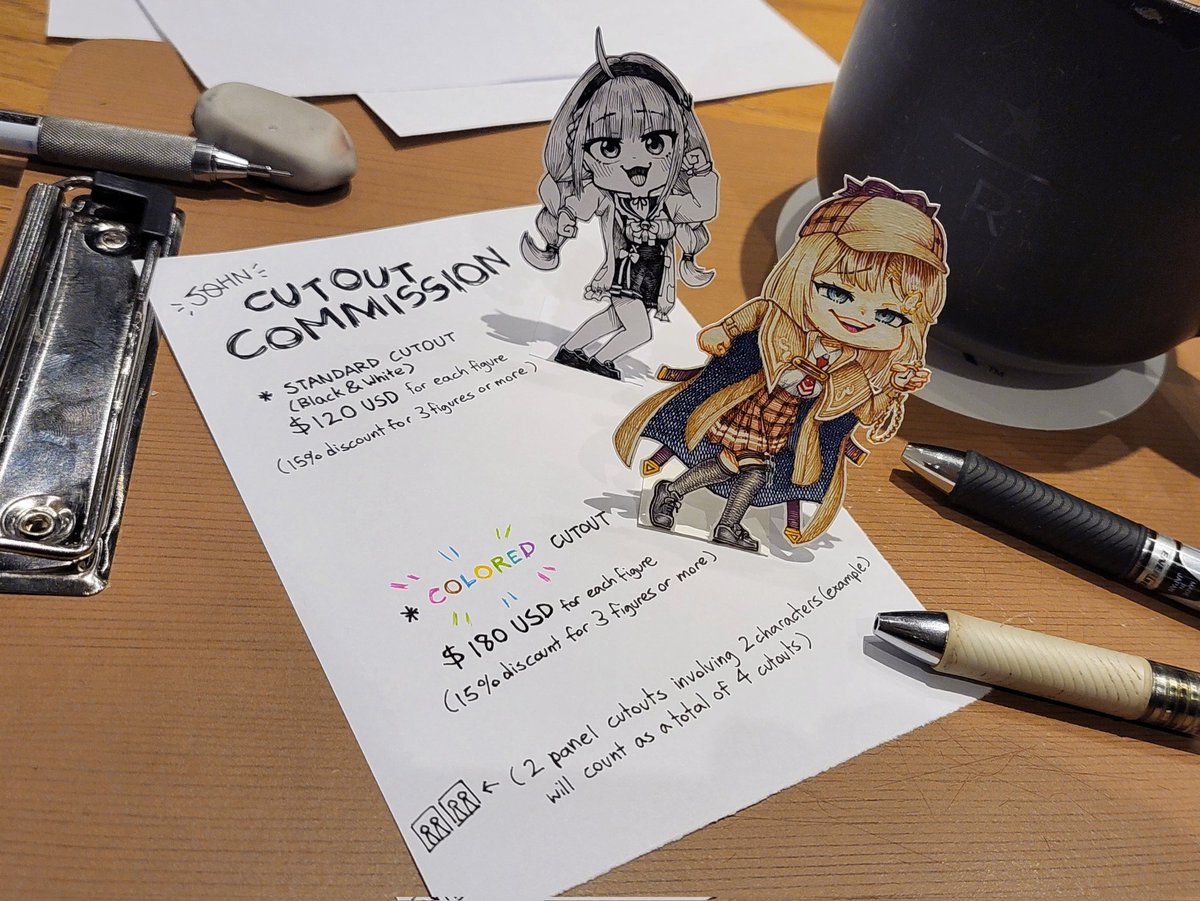 JOHN
CUTOUT
COMMISSION
* STANDARD CUTOUT
(Black & White)
$120 USD for each figure
(15% discount for 3 figures or more)
* COLORED CUTOUT
$180 USD for each figure
(15% discount for 3 figures or more)
← (2 panel cutouts involving 2 characters (example)
will count as a total of 4 cutouts)
R
TM